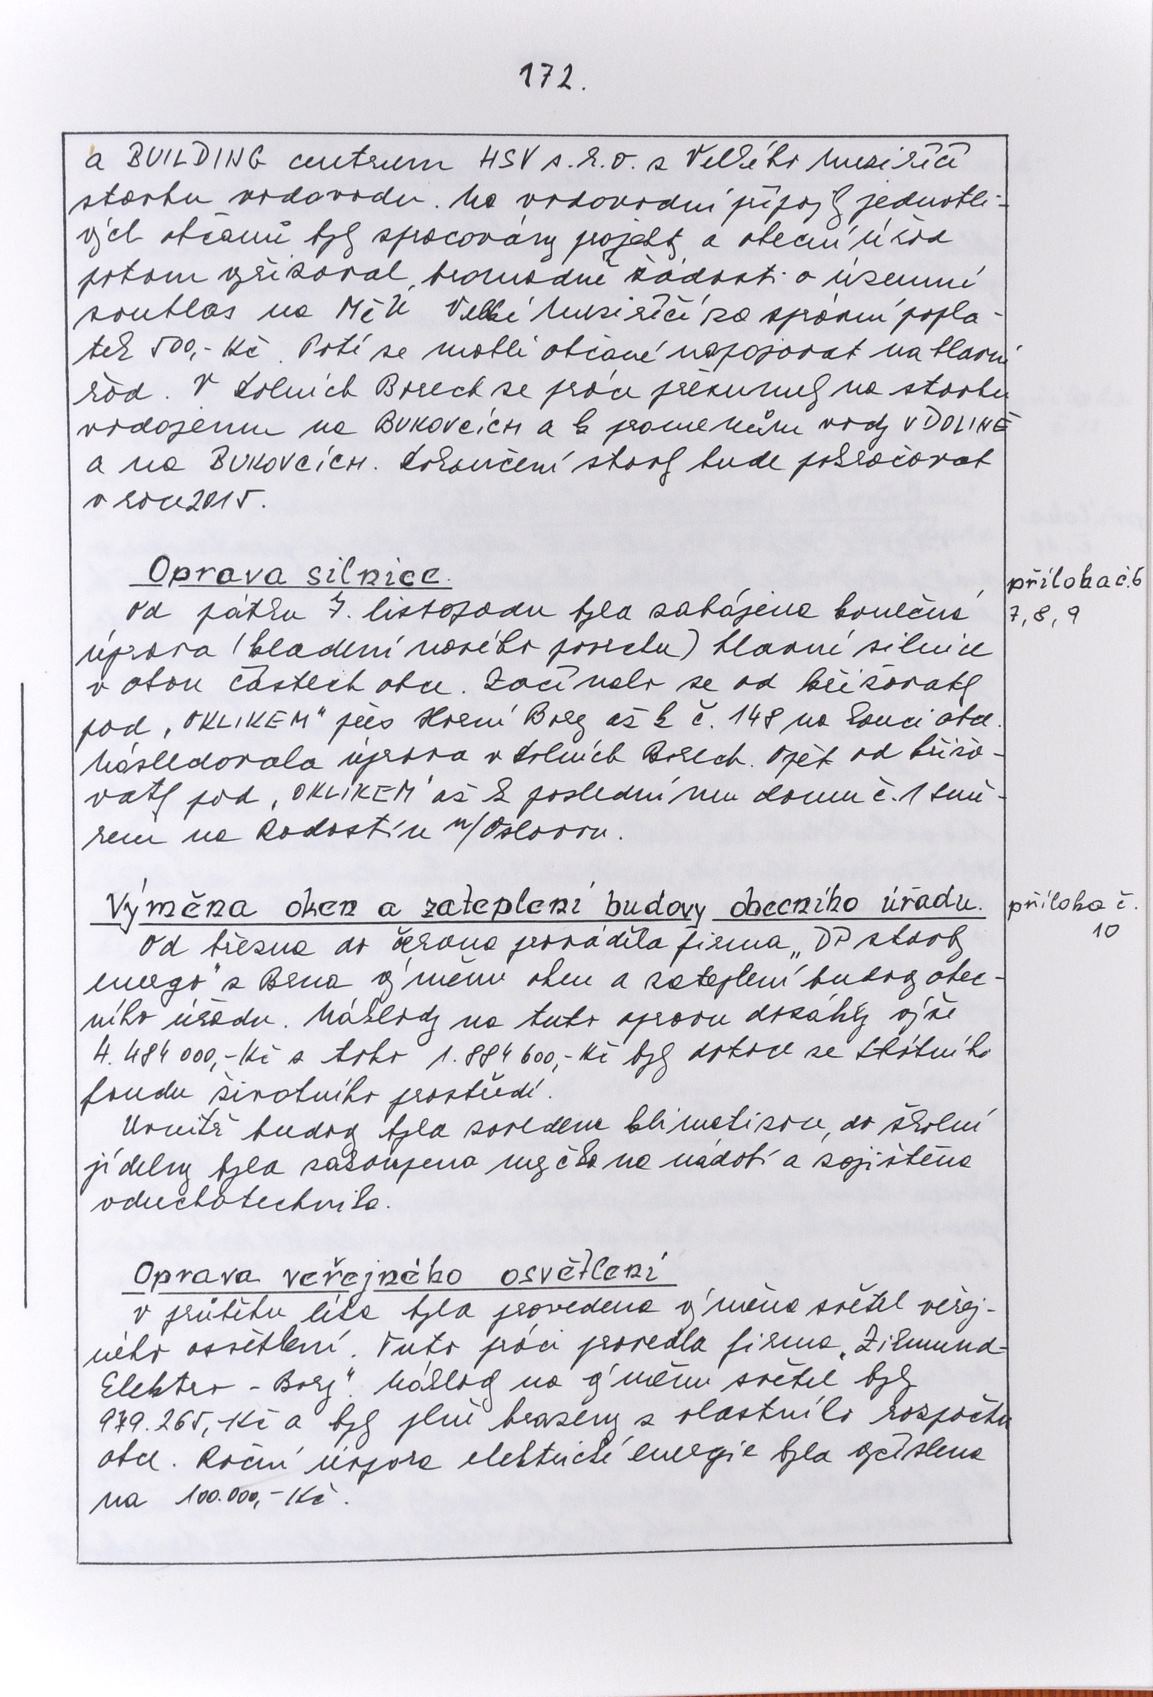 172.
a BUILDING centrum HSV s.r.o. z Velkého Meziříčí
stavbu vodovodu. Na vodovodní přípojky jednotli-
vých občanů byly zpracovány projekty a obecní úřad
potom vyřizoval hromadně žádosti o územní
souhlas na MěÚ Velké Meziříčí za správní popla-
tek 500,-Kč. Poté se mohli občané napojovat na hlavní
řád. V Dolních Borech se práce přesunuly na stavbu
vodojemu na BUKOVCÍCH a k pramenům vody v DOLINĚ
a na BUKOVCÍCH. Dokončení stavby bude pokračovat
v roce 2015.
Oprava silnice.
příloha č. 6
Od pátku 7. listopadu byla zahájena konečná
7, 8, 9
úprava (kladení nového povrchu) hlavní silnice
v obou částech obce. Začínalo se od křižovatky
pod „OKLIKEM" přes Horní Bory až k č. 148 na konci obce.
Následovala úprava v Dolních Borech. Opět od křižo-
vatky pod „OKLIKEM" až k poslednímu domu č. 1 smě-
rem na Radostín n/Oslavou.
Výměna oken a zateplení budovy obecního úřadu.
příloha č.
10
Od března do června prováděla firma „DP stavby
energo" z Brna výměnu oken a zateplení budovy obec-
ního úřadu. Náklady na tuto opravu dosáhly výše
4.484 000,-Kč z toho 1.884 600,-Kč byly dotace ze Státního
fondu životního prostředí.
Uvnitř budovy byla zavedena klimatizace, do školní
jídelny byla zakoupena myčka na nádobí a zajištěna
vduchotechnika.
Oprava veřejného osvětlení
V průběhu léta byla provedena výměna světel veřej-
ného osvětlení. Tuto práci provedla firma „Zikmund-
Elektro - Bory". Náklady na výměnu světel byly
979.265,-Kč a byly plně hrazeny z vlastního rozpočtu
obce. Roční úspora elektrické energie byla vyčíslena
na 100.000,-Kč.